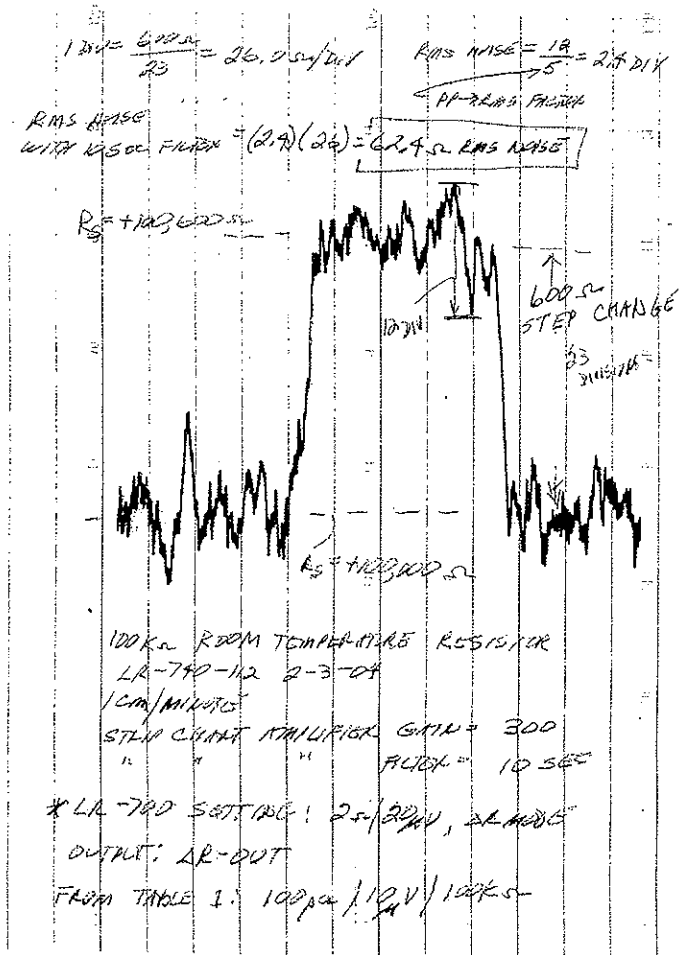 1 DIV = 600Ω / 23 = 26.0 Ω/DIV
RMS NOISE = 12 / 5 = 2.4 DIV
PP→RMS FACTOR
RMS NOISE
WITH 10 SEC FILTER = (2.4)(26) = 62.4 Ω RMS NOISE
Rs = +100,600 Ω
12 DIV
600 Ω
STEP CHANGE
23
DIVISIONS
Rs = +100,000 Ω
100KΩ ROOM TEMPERATURE RESISTOR
LR-740-112 2-3-04
1 CM/MINUTE
STRIP CHART AMPLIFIER GAIN = 300
" " " FILTER = 10 SEC
* LR-700 SETTING: 2Ω/20µV, ΔR MODE
OUTPUT: ΔR-OUT
FROM TABLE 1: 100 /10µV/100KΩ